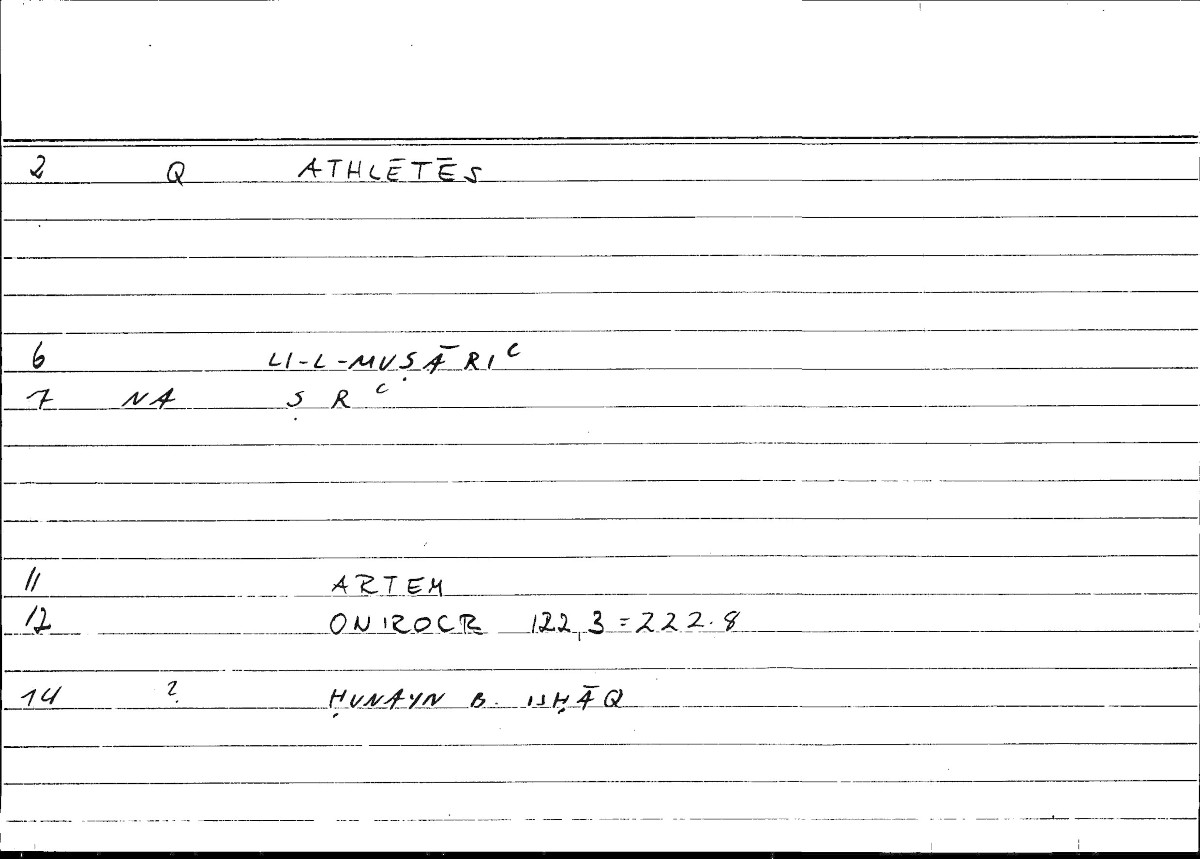 2 Q ATHLĒTĒS
6 LI-L-MUṢĀRIʿ
7 NA Ṣ R ʿ
11 ARTEM
12 ONIROCR 122,3=222.8
14 ? ḤUNAYN B. ISḤĀQ